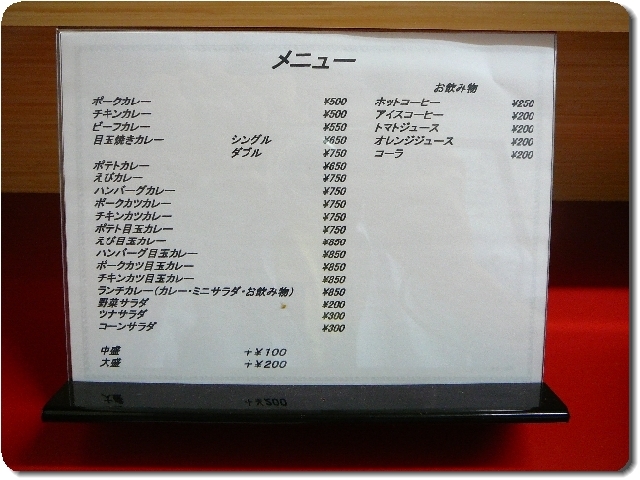 メニュー
お飲み物
ポークカレー ¥500
チキンカレー ¥500
ビーフカレー ¥550
目玉焼きカレー シングル ¥650
ダブル ¥750
ポテトカレー ¥650
えびカレー ¥750
ハンバーグカレー ¥750
ポークカツカレー ¥750
チキンカツカレー ¥750
ポテト目玉カレー ¥750
えび目玉カレー ¥850
ハンバーグ目玉カレー ¥850
ポークカツ目玉カレー ¥850
チキンカツ目玉カレー ¥850
ランチカレー(カレー・ミニサラダ・お飲み物) ¥850
野菜サラダ ¥200
ツナサラダ ¥300
コーンサラダ ¥300
中盛 +¥100
大盛 +¥200
ホットコーヒー ¥250
アイスコーヒー ¥200
トマトジュース ¥200
オレンジジュース ¥200
コーラ ¥200